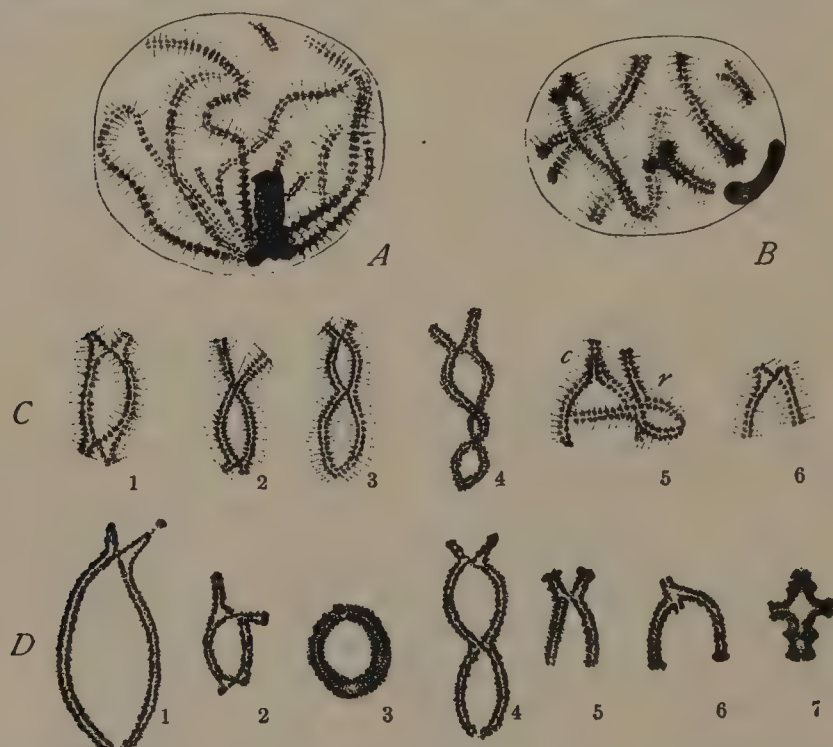 A
B
C c r
1 2 3 4 5 6
D
1 2 3 4 5 6 7